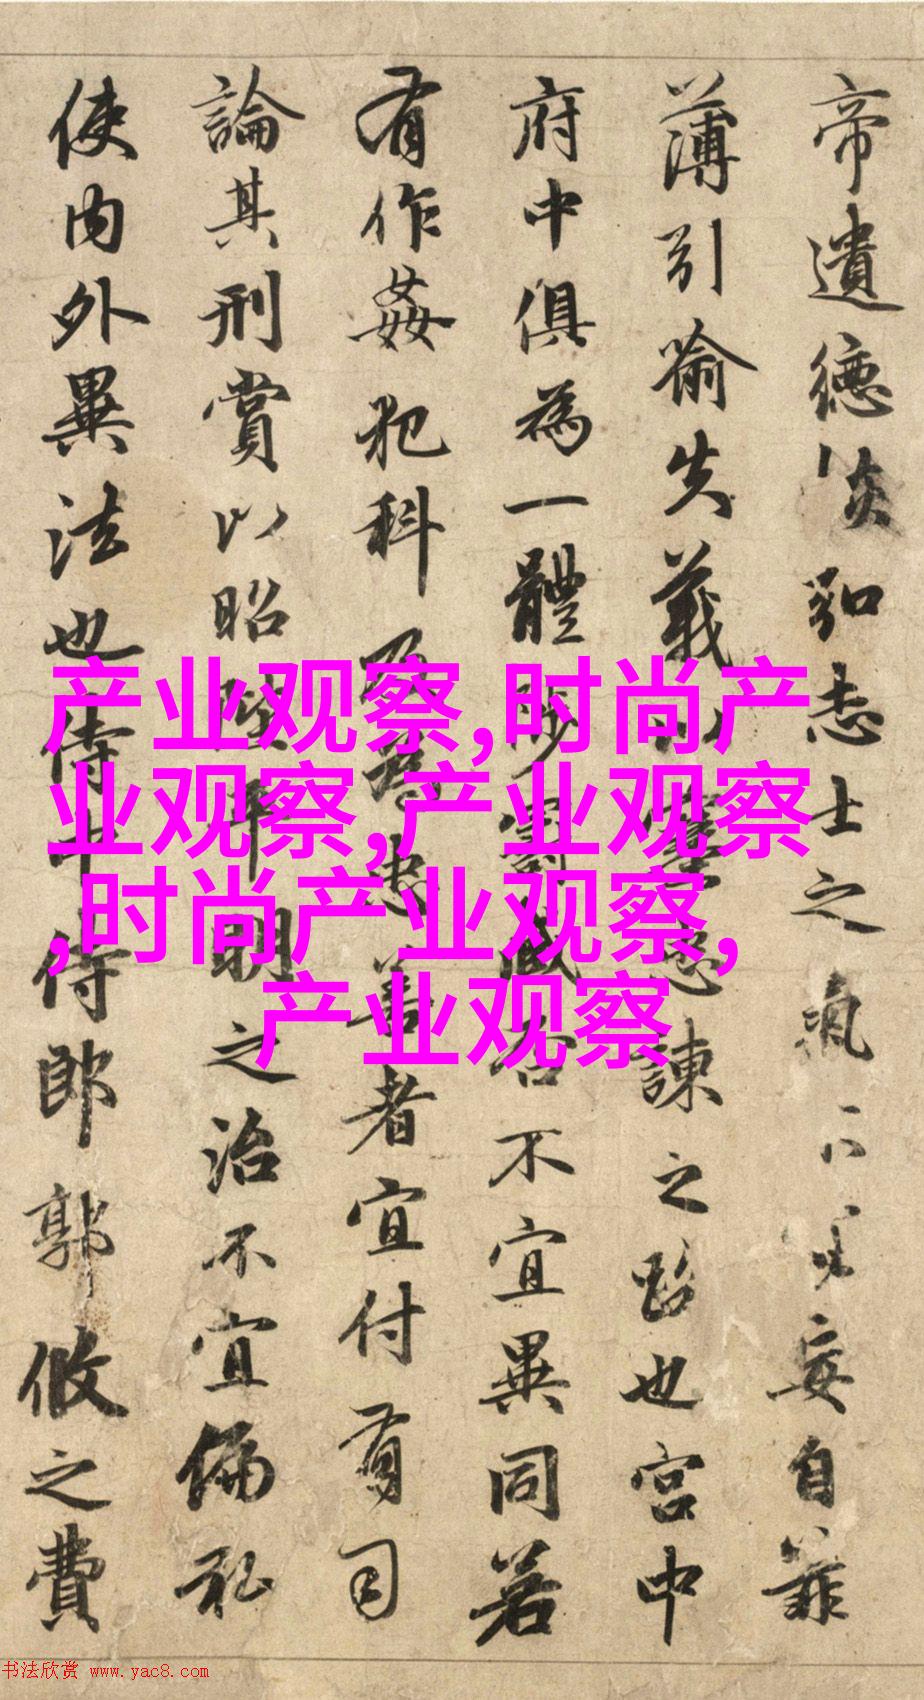 帝遺德恢弘志士之氣不妄自菲
薄引喻失義以塞忠諫之路也宮中
府中俱為一體陟罰臧否不宜異同若
有作姦犯科及為忠善者宜付有司
論其刑賞以昭陛平明之治不宜偏私
使內外異法也侍中侍郎郭攸之費
产业观察,时尚产
业观察,产业观察
,时尚产业观察,
产业观察
书法欣赏 www.yac8.com